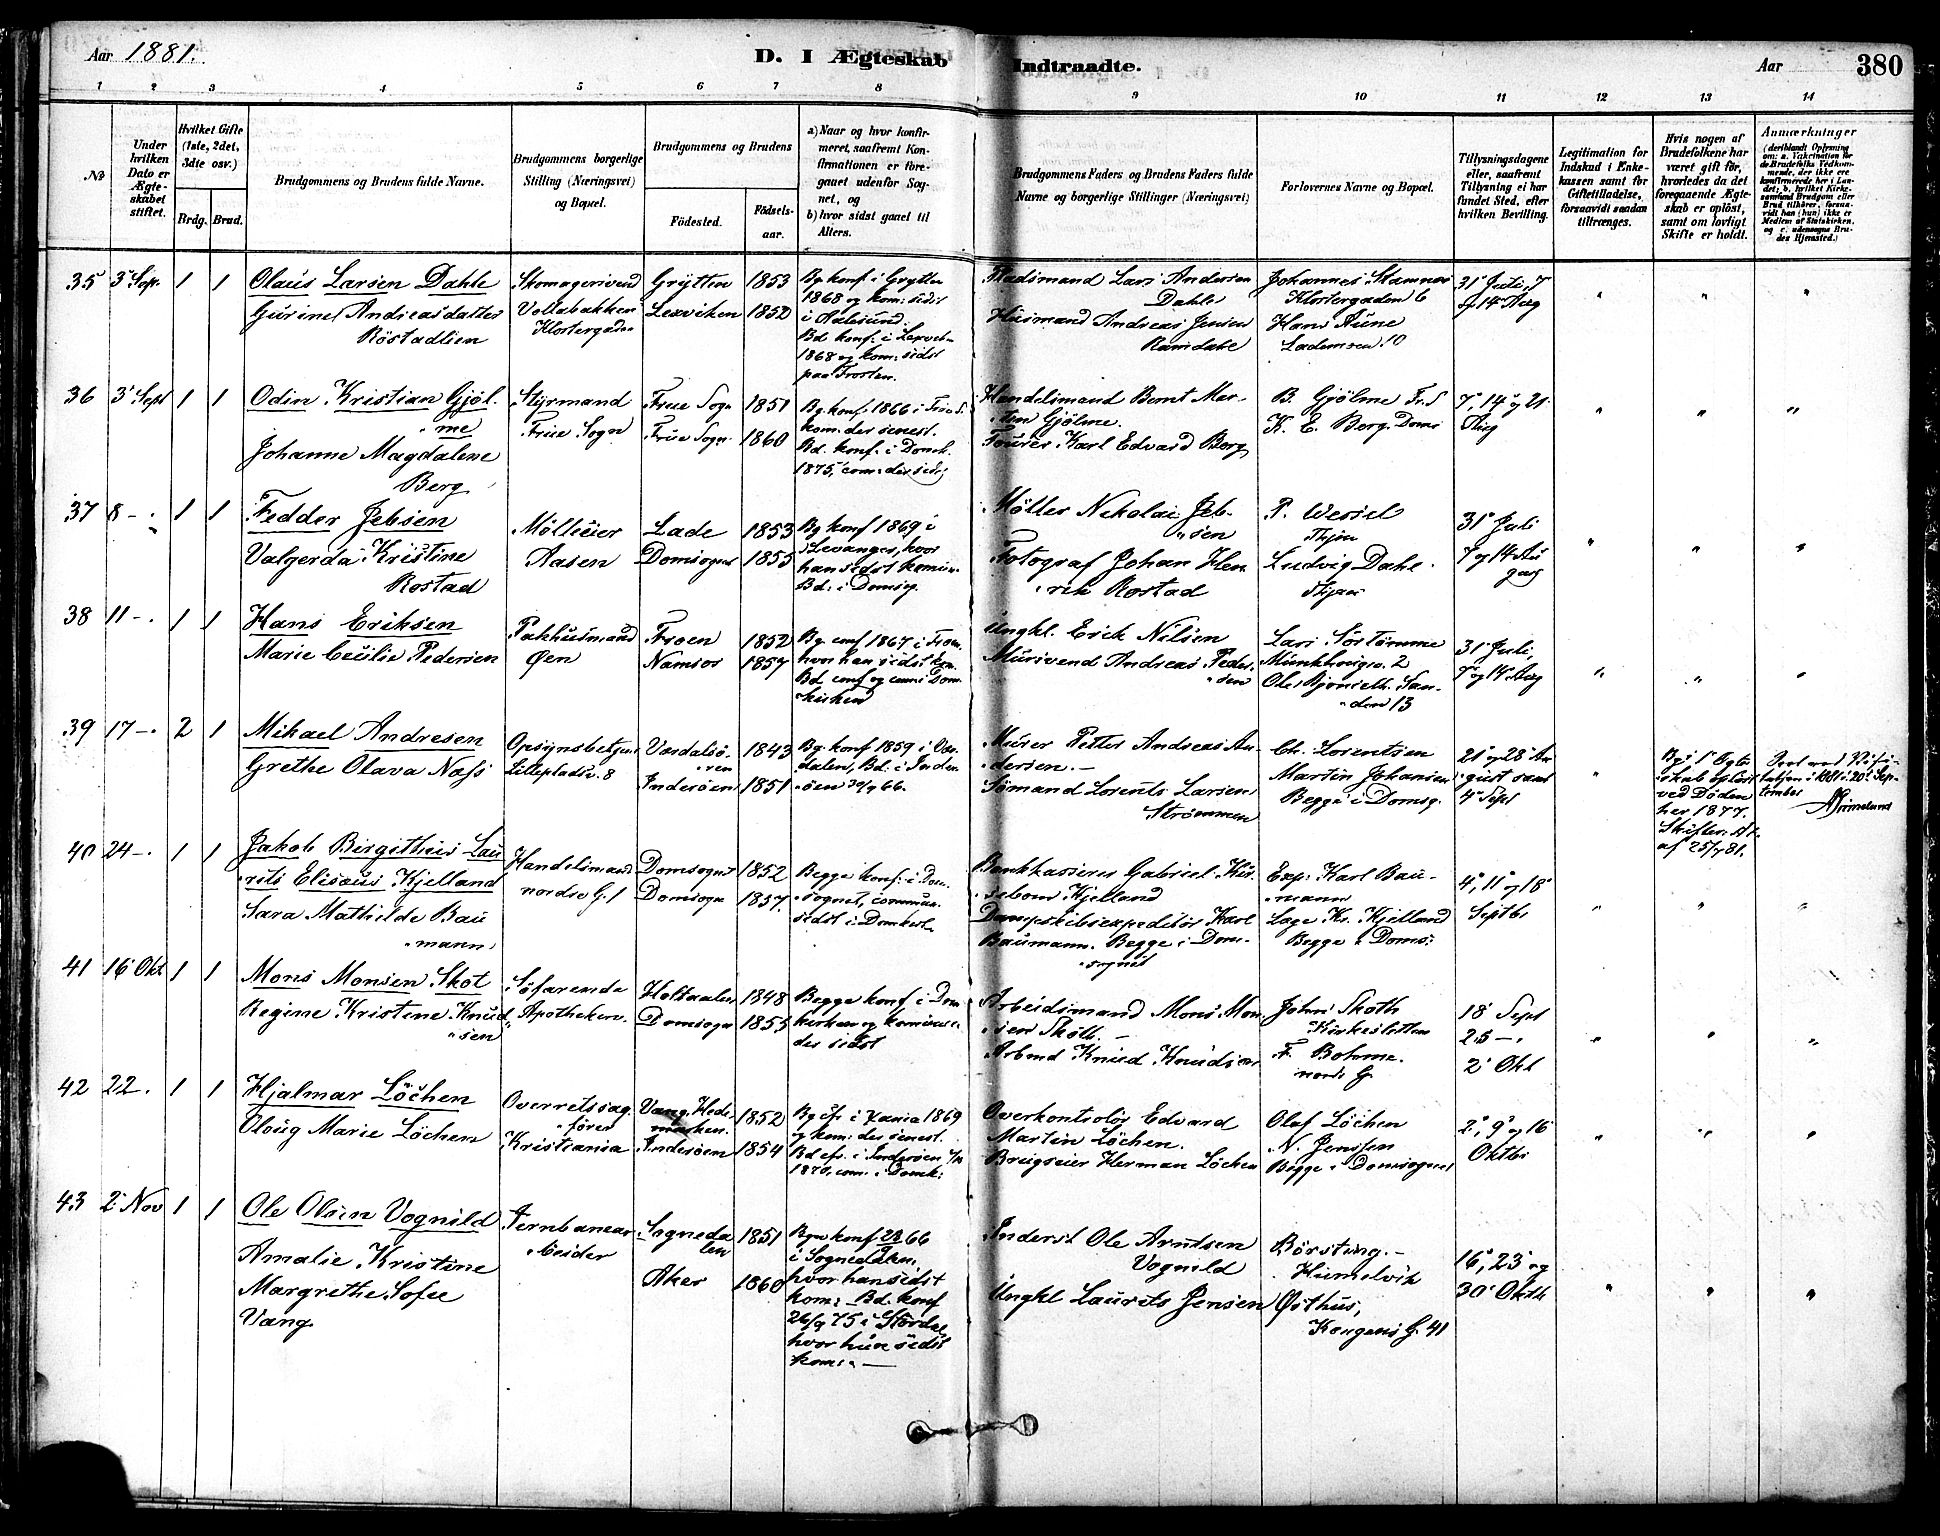 Aar 1881.
D. I Ægteskab Indtraadte.
Aar
380
1 2 3 4 5 6 7 8 9 10 11 12 13 14
No
Under hvilken Dato er Ægteskabet stiftet.
Hvilket Gifte (1ste, 2det, 3die osv.)
Brdg. Brud.
Brudgommens og Brudens fulde Navne.
Brudgommens borgerlige Stilling (Næringsvei) og Bopæl.
Brudgommens og Brudens
Födested.
Födsels-aar.
a) Naar og hvor konfirmeret, saafremt Konfirmationen er foregaaet udenfor Sognet, og
b) hvor sidst gaaet til Alters.
Brudgommens Faders og Brudens Faders fulde Navne og borgerlige Stillinger (Næringsvei)
Forlovernes Navne og Bopæl.
Tillysningsdagene eller, saafremt Tillysning ei har fundet Sted, efter hvilken Bevilling.
Legitimation for Indskud i Enkekassen samt for Giftetilladelse, forsaavidt saadan tiltrænges.
Hvis nogen af Brudefolkene har været gift før, hvorledes da det foregaaende Ægteskab er opløst, samt om lovligt Skifte er holdt.
Anmærkninger
35 3 Sep. 1 1
Olaus Larsen Dahle
Gurine Andreasdatter
Röstadlien
Skomagersvend
Vollabakken
Klostergaden
Grytten 1853
Lexviken 1852
Bg konf. i Grytten
1868 og kom: sidst
i Aalesund.
Bd konf: i Lexvek-
1868 og kom: sidst
paa Frosten.
Pladsmand Lars Andersen
Dahle
Husmand Andreas Jensen
Ramdahl
Johannes Stamnes
Klostergaden 6
Hans Aune
Lademoen 10
31 Juli, 7
og 14 Aug
36 3 Sept 1 1
Odin Kristian Gjöl-
me
Johanne Magdalene
Berg
Styrmand
Frue Sogn
Frue Sogn 1851
Frue Sogn 1860
Bg konf: 1866 i Frue S.
kom: der senest.
Bd. konf: i Domk.
1875, com: der sidst
Handelsmand Bernt Mar-
tin Gjölme.
Fourer Karl Edvard Berg
B. Gjölme Fr. S
K. E. Berg. Doms
7, 14 og 21
Aug
37 8 - 1 1
Fedder Jebsen
Valgerda Kristine
Rostad
Mölleier
Aasen
Lade 1853
Domsognet 1855
Bg konf 1869 i
Levanger, hvor
han sidst komm.
Bd: i Domsog.
Möller Nikolai Jeb-
sen
Fotograf Johan Hen-
rik Rostad
P. Wessel
Thjem
Ludvig Dahl
Thjem
31 Juli
7 og 14 Au
gust
38 11 - 1 1
Hans Eriksen
Marie Cecilie Pedersen
Pakhusmand
Øen
Froen 1852
Namsos 1857
Bg conf 1867 i Froen
hvor han sidst kom.
Bd conf og com: i Dom
kirken
Ungkl. Erick Nilsen
Mursvend Andreas Peder-
sen
Lars Sörtömme
Munkhaugv. 2
Ole Bjönseth. San-
den 13
31 Juli,
7 og 14 Aug
39 17 - 2 1
Mikael Andresen
Grethe Olava Næss
Opsynsbetjent
Lilleplads. 8
Værdalsö-
ren 1843
Inderöen 1851
Bg. konf 1859 i Vær
dalen, Bd. i Inder
öen 30/9 66.
Murer Petter Andreas An-
dersen.
Sömand Lorents Larsen
Strömmen
Ch. Lorentsen
Martin Johansen
Begge i Domsg.
21 og 28 Au
gust samt
4 Sept
Bg: s 1 Ægte
skab oplöst
ved Döden
her 1877.
Skifter: At.
af 25/7 81.
Seet ved Visi-
tatsen i 1881 20 Sep-
tember
Grimelund
40 24 - 1 1
Jakob Birgithus Lau
rits Elisæus Kjelland
Sara Mathilde Bau
mann
Handelsmand
nordre G. 1
Domsognet 1852
Domsogn 1857.
Begge konf: i Dom-
sognet, commun.
sidst i Domkirk.
Bankkasserer Gabriel Kir-
sebom Kjelland
Dampskibsexpeditör Karl
Baumann. Begge i Dom-
sognet
Exp: Karl Bau-
mann
Lage Kr. Kjelland
Begge i Doms:
4, 11 og 18
Septbr
41 16 Okt 1 1
Mons Monsen Skot
Regine Kristine Knud
sen
Söfarende
Apotheker
Holtaalen 1848
Domsogn 1855
Begge konf i Dom
kirken og kommune.
der sidst
Arbeidsmand Mons Mon
sen Skott.
Arbmd Knud Knudsen
John Skoth
Kirkesletten
F. Bohme.
nordr G.
18 Sept
25 -
2 Okt
42 22. 1 1
Hjalmar Löchen
Oloug Marie Löchen
Overretssag-
förer
Kristiania
Vang, Hede-
marken. 1852
Inderöen 1854
Bg cfr. i Xania 1869
og kom: der senest.
Bd cfr. i Inderöen
1870, com: i Domk:
Overkontrolör Edvard
Martin Löchen.
Brugseier Herman Löchen
Olaf Löchen
N. Jenssen
Begge i Domsognet
2, 9 og 16
Oktbr
43 2 Nov 1 1
Ole Olsen Vognild
Amalie Kristine
Margrethe Sofie
Vang
Jernbanear
beider
Sogneda
len 1851
Aker 1860
Bgm konf 66
i Sognedalen,
hvor han sidst
kom: Bd. konf
26/9 75 i Stördal
hvor hun sidst
kom:
Inderst Ole Arntsen
Vognild
Ungkl Laurits Jensen
Börsting.
Humelvik
Østhus,
Kongens G. 41
16, 23 og
30 Oktb